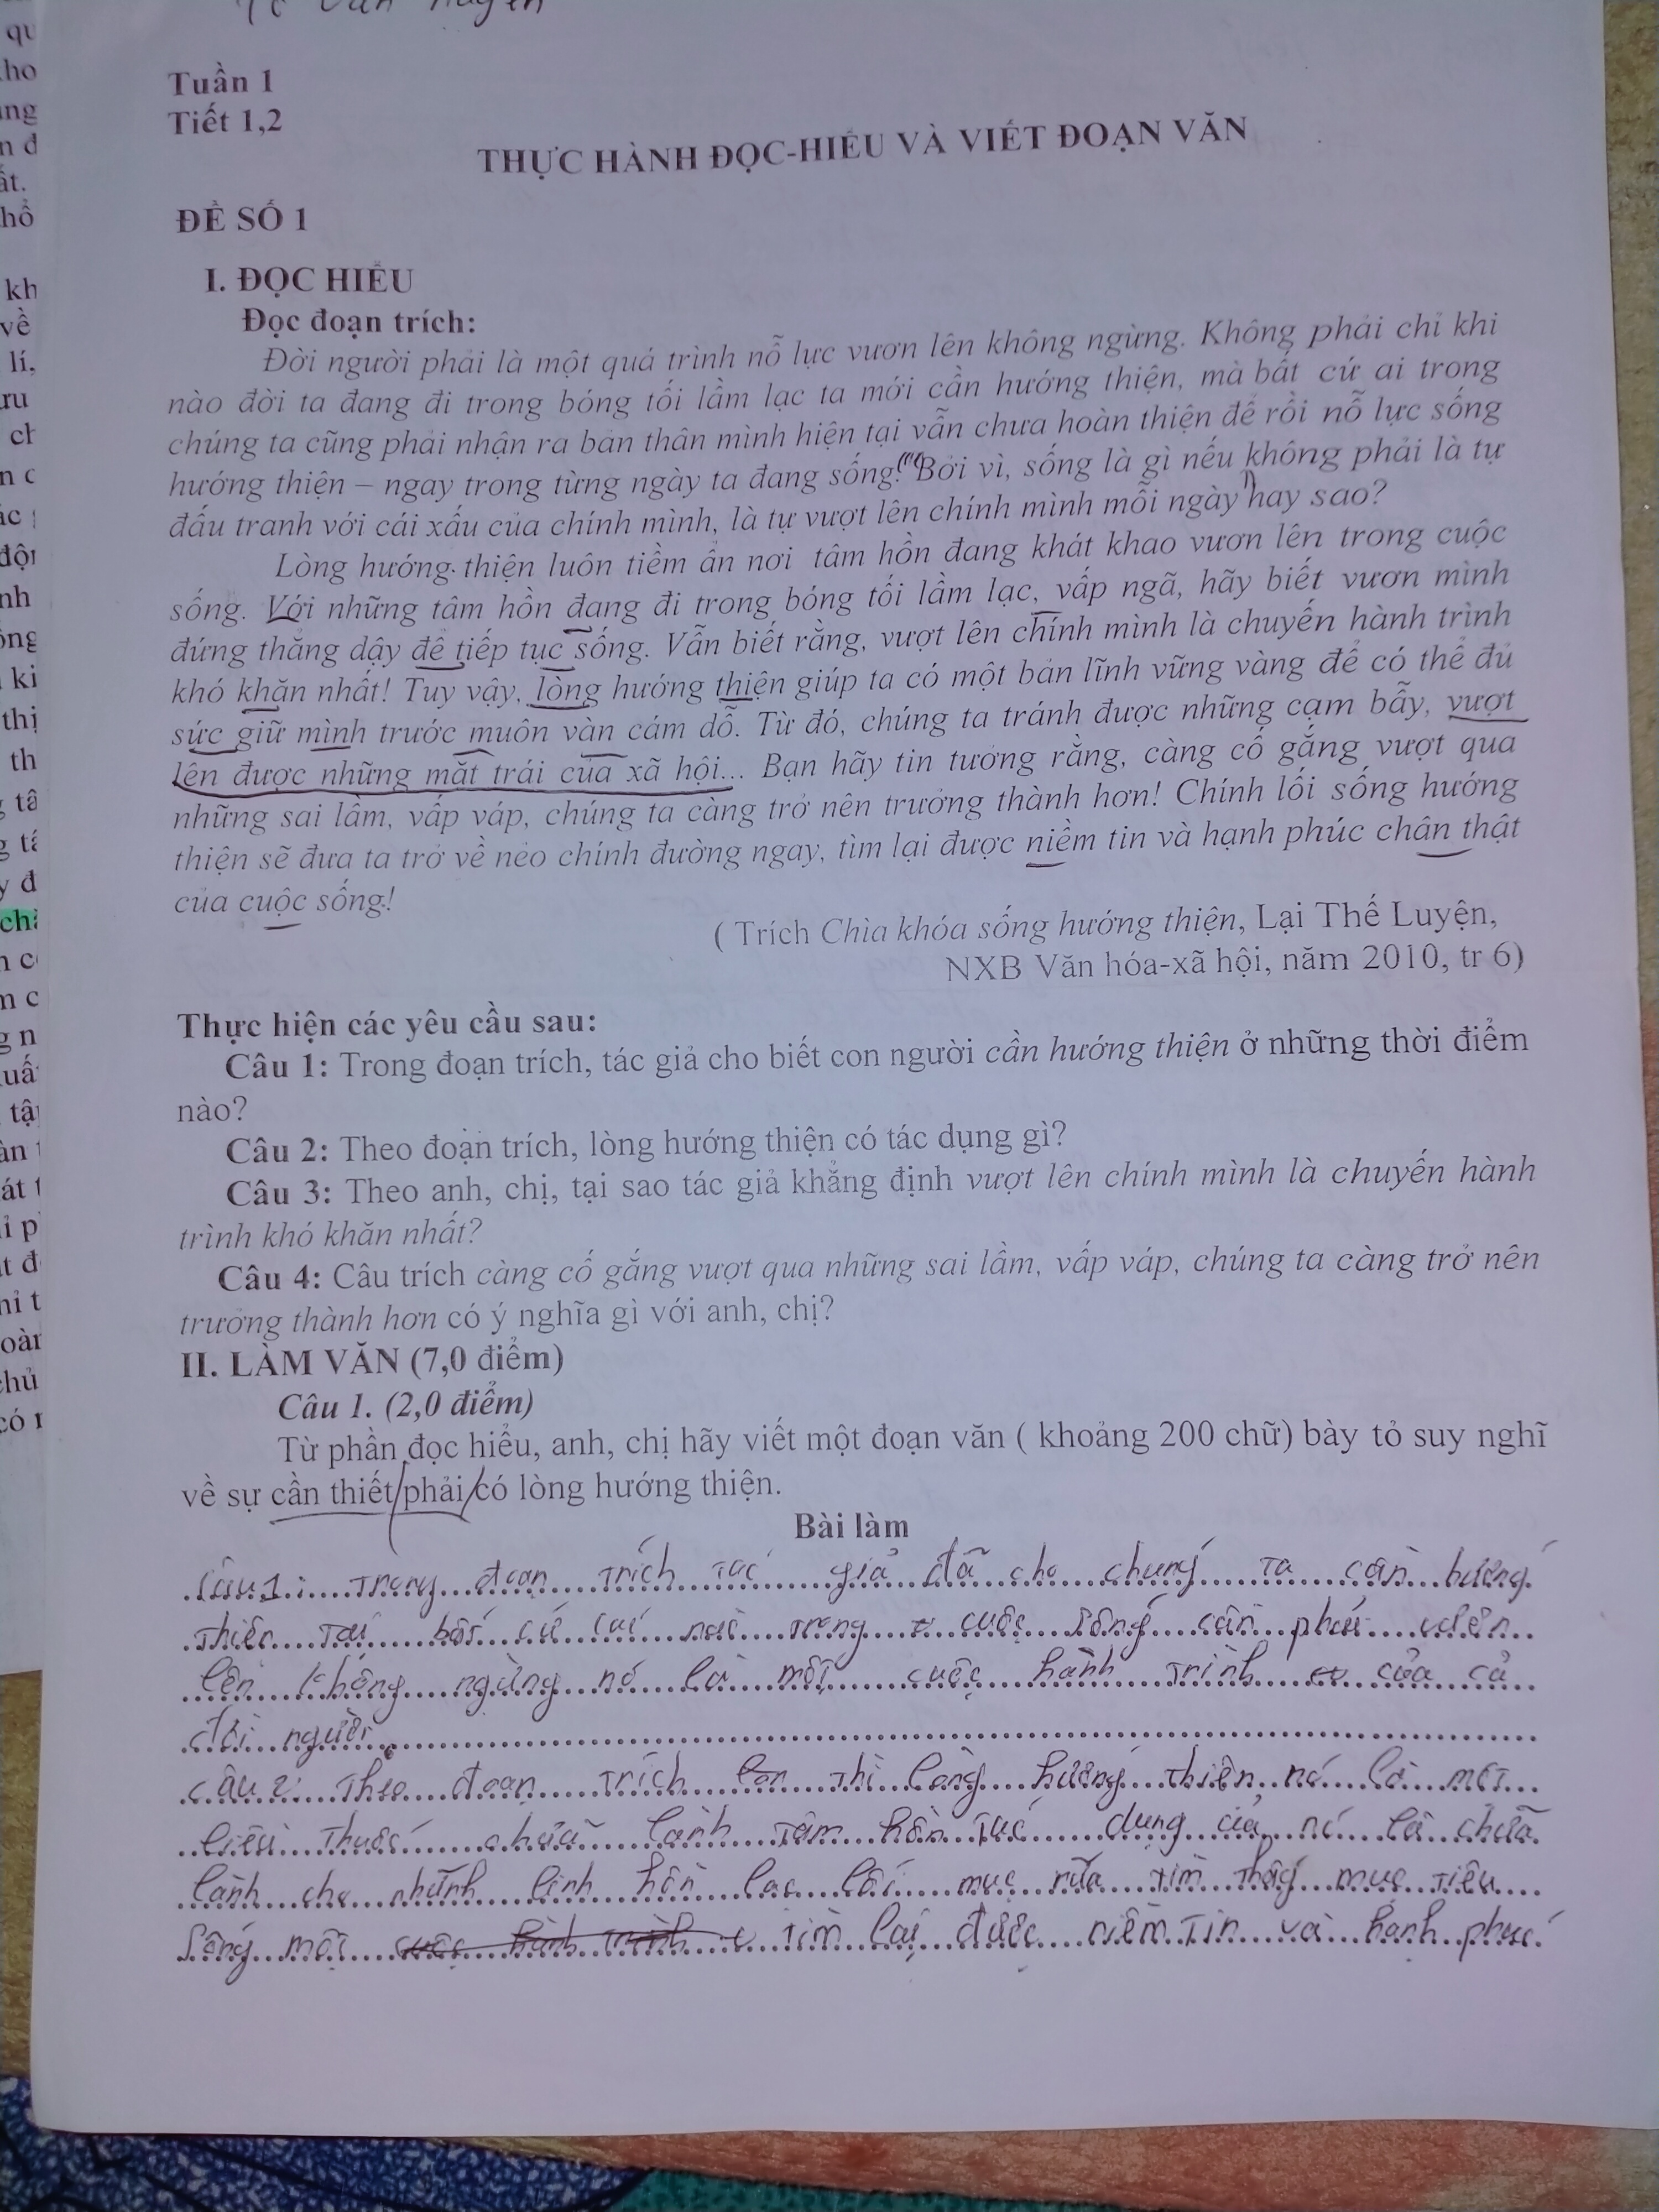 Tô Văn Huyên
Tuần 1
Tiết 1,2
THỰC HÀNH ĐỌC-HIỂU VÀ VIẾT ĐOẠN VĂN
ĐỀ SỐ 1
I. ĐỌC HIỂU
Đọc đoạn trích:
Đời người phải là một quá trình nỗ lực vươn lên không ngừng. Không phải chỉ khi
nào đời ta đang đi trong bóng tối lầm lạc ta mới cần hướng thiện, mà bất cứ ai trong
chúng ta cũng phải nhận ra bản thân mình hiện tại vẫn chưa hoàn thiện để rồi nỗ lực sống
hướng thiện – ngay trong từng ngày ta đang sống! Bởi vì, sống là gì nếu không phải là tự
đấu tranh với cái xấu của chính mình, là tự vượt lên chính mình mỗi ngày hay sao?
Lòng hướng thiện luôn tiềm ẩn nơi tâm hồn đang khát khao vươn lên trong cuộc
sống. Với những tâm hồn đang đi trong bóng tối lầm lạc, vấp ngã, hãy biết vươn mình
đứng thẳng dậy để tiếp tục sống. Vẫn biết rằng, vượt lên chính mình là chuyến hành trình
khó khăn nhất! Tuy vậy, lòng hướng thiện giúp ta có một bản lĩnh vững vàng để có thể đủ
sức giữ mình trước muôn vàn cám dỗ. Từ đó, chúng ta tránh được những cạm bẫy, vượt
lên được những mặt trái của xã hội... Bạn hãy tin tưởng rằng, càng cố gắng vượt qua
những sai lầm, vấp váp, chúng ta càng trở nên trưởng thành hơn! Chính lối sống hướng
thiện sẽ đưa ta trở về nẻo chính đường ngay, tìm lại được niềm tin và hạnh phúc chân thật
của cuộc sống!
( Trích Chìa khóa sống hướng thiện, Lại Thế Luyện,
NXB Văn hóa-xã hội, năm 2010, tr 6)
Thực hiện các yêu cầu sau:
Câu 1: Trong đoạn trích, tác giả cho biết con người cần hướng thiện ở những thời điểm
nào?
Câu 2: Theo đoạn trích, lòng hướng thiện có tác dụng gì?
Câu 3: Theo anh, chị, tại sao tác giả khẳng định vượt lên chính mình là chuyến hành
trình khó khăn nhất?
Câu 4: Câu trích càng cố gắng vượt qua những sai lầm, vấp váp, chúng ta càng trở nên
trưởng thành hơn có ý nghĩa gì với anh, chị?
II. LÀM VĂN (7,0 điểm)
Câu 1. (2,0 điểm)
Từ phần đọc hiểu, anh, chị hãy viết một đoạn văn ( khoảng 200 chữ) bày tỏ suy nghĩ
về sự cần thiết/phải/có lòng hướng thiện.
Bài làm
Câu 1: Trong đoạn trích tác giả đã cho chúng ta cần hướng
thiện tại bất cứ nào trong cuộc sống cần phải
lên không ngừng nó là một cuộc hành trình của cả
đời người.
câu 2: Theo đoạn trích thì lòng hướng thiện, nó là một
liều thuốc chữa lành tâm hồn tác dụng của nó là chữa
lành cho những linh hồn lạc lối mục rữa tìm thấy mục tiêu
sống mới tìm lại được niềm tin và hạnh phúc